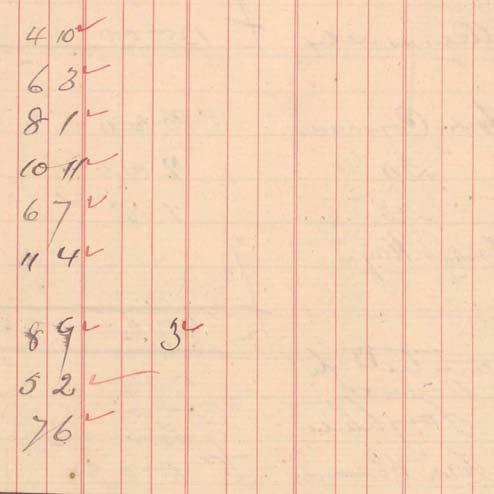 4 10
6 3
8 1
10 11
6 7
11 4
8 9 3
5 2
7 6